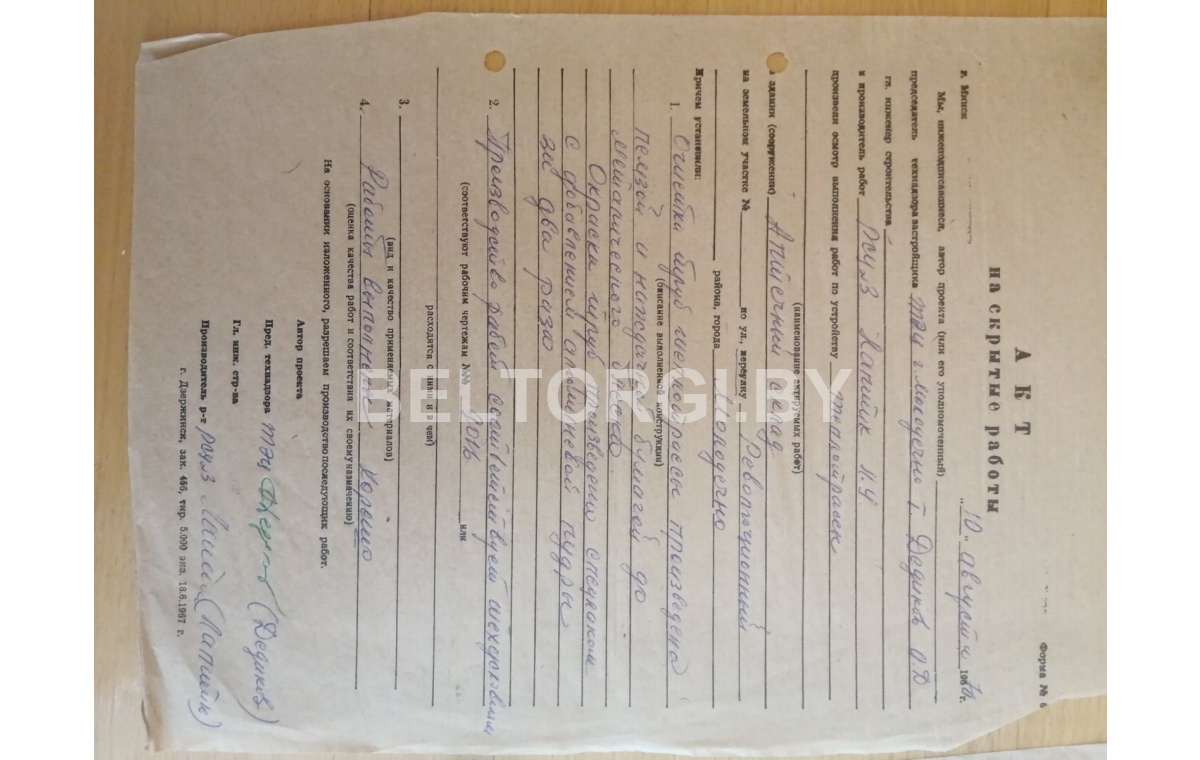 Форма № 6
АКТ
на скрытые работы
г. Минск
„10" августа 196 г.
Мы, нижеподписавшиеся, автор проекта (или его уполномоченный)
председатель технадзора застройщика ТЭЦ г. Молодечно т. Дедиков
гл. инженер строительства
и производитель работ Лапшик
произвели осмотр выполнения работ по устройству теплотрассы
(наименование актируемых работ)
в здании (сооружении) Аптечный склад
на земельном участке № по ул., переулку Революционный
района, города Молодечно
Причем установили:
1. Очистка труб теплотрассы произведена
(описание выполненной конструкции)
пемзой и наждачной бумагой до
металлического блеска.
Окраска труб произведена спецлаком
с добавлением алюминевой пудры
за два раза
2. Производство работ соответствует техусловиям
(соответствуют рабочим чертежам №№ или
расходятся с ними и в чем)
3.
(вид и качество применяемых материалов)
4. Работы выполнены хорошо
(оценка качества работ и соответствия их своему назначению)
На основании изложенного, разрешаем производство последующих работ.
Автор проекта
Пред. технадзора ТЭЦ (Дедиков)
Гл. инж. стр-ва
Производитель р-т (Лапшик)
г. Дзержинск, зак. 456, тир. 5.000 экз. 18.6.1967 г.
BELTORGI.BY